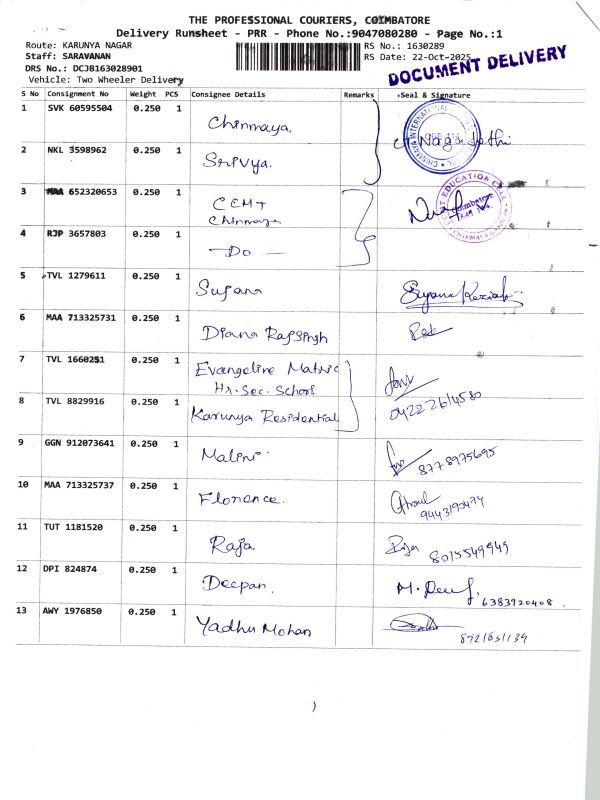 THE PROFESSIONAL COURIERS, COIMBATORE
Delivery Runsheet - PRR - Phone No.:9047080280 - Page No.:1
Route: KARUNYA NAGAR
RS No.: 1630289
Staff: SARAVANAN
RS Date: 22-Oct-2025
DRS No.: DCJB163028901
DOCUMENT DELIVERY
Vehicle: Two Wheeler Delivery
S No Consignment No Weight PCS Consignee Details Remarks Seal & Signature
1 SVK 60595504 0.250 1 Chinmaya.
2 NKL 3598962 0.250 1 Srivya.
3 MAA 652320653 0.250 1 CEMT
Chinmaya
4 RJP 3657803 0.250 1 - Do -
5 TVL 1279611 0.250 1 Sujana
6 MAA 713325731 0.250 1 Diana Rajsingh
7 TVL 1660251 0.250 1 Evangeline Matric
Hr. Sec. School
8 TVL 8829916 0.250 1 Karunya Residential
04222614580
9 GGN 912073641 0.250 1 Malini
8778975695
10 MAA 713325737 0.250 1 Florence.
11 TUT 1181520 0.250 1 Raja
8015549949
12 DPI 824874 0.250 1 Deepan.
6383920408
13 AWY 1976850 0.250 1 Yadhu Mohan